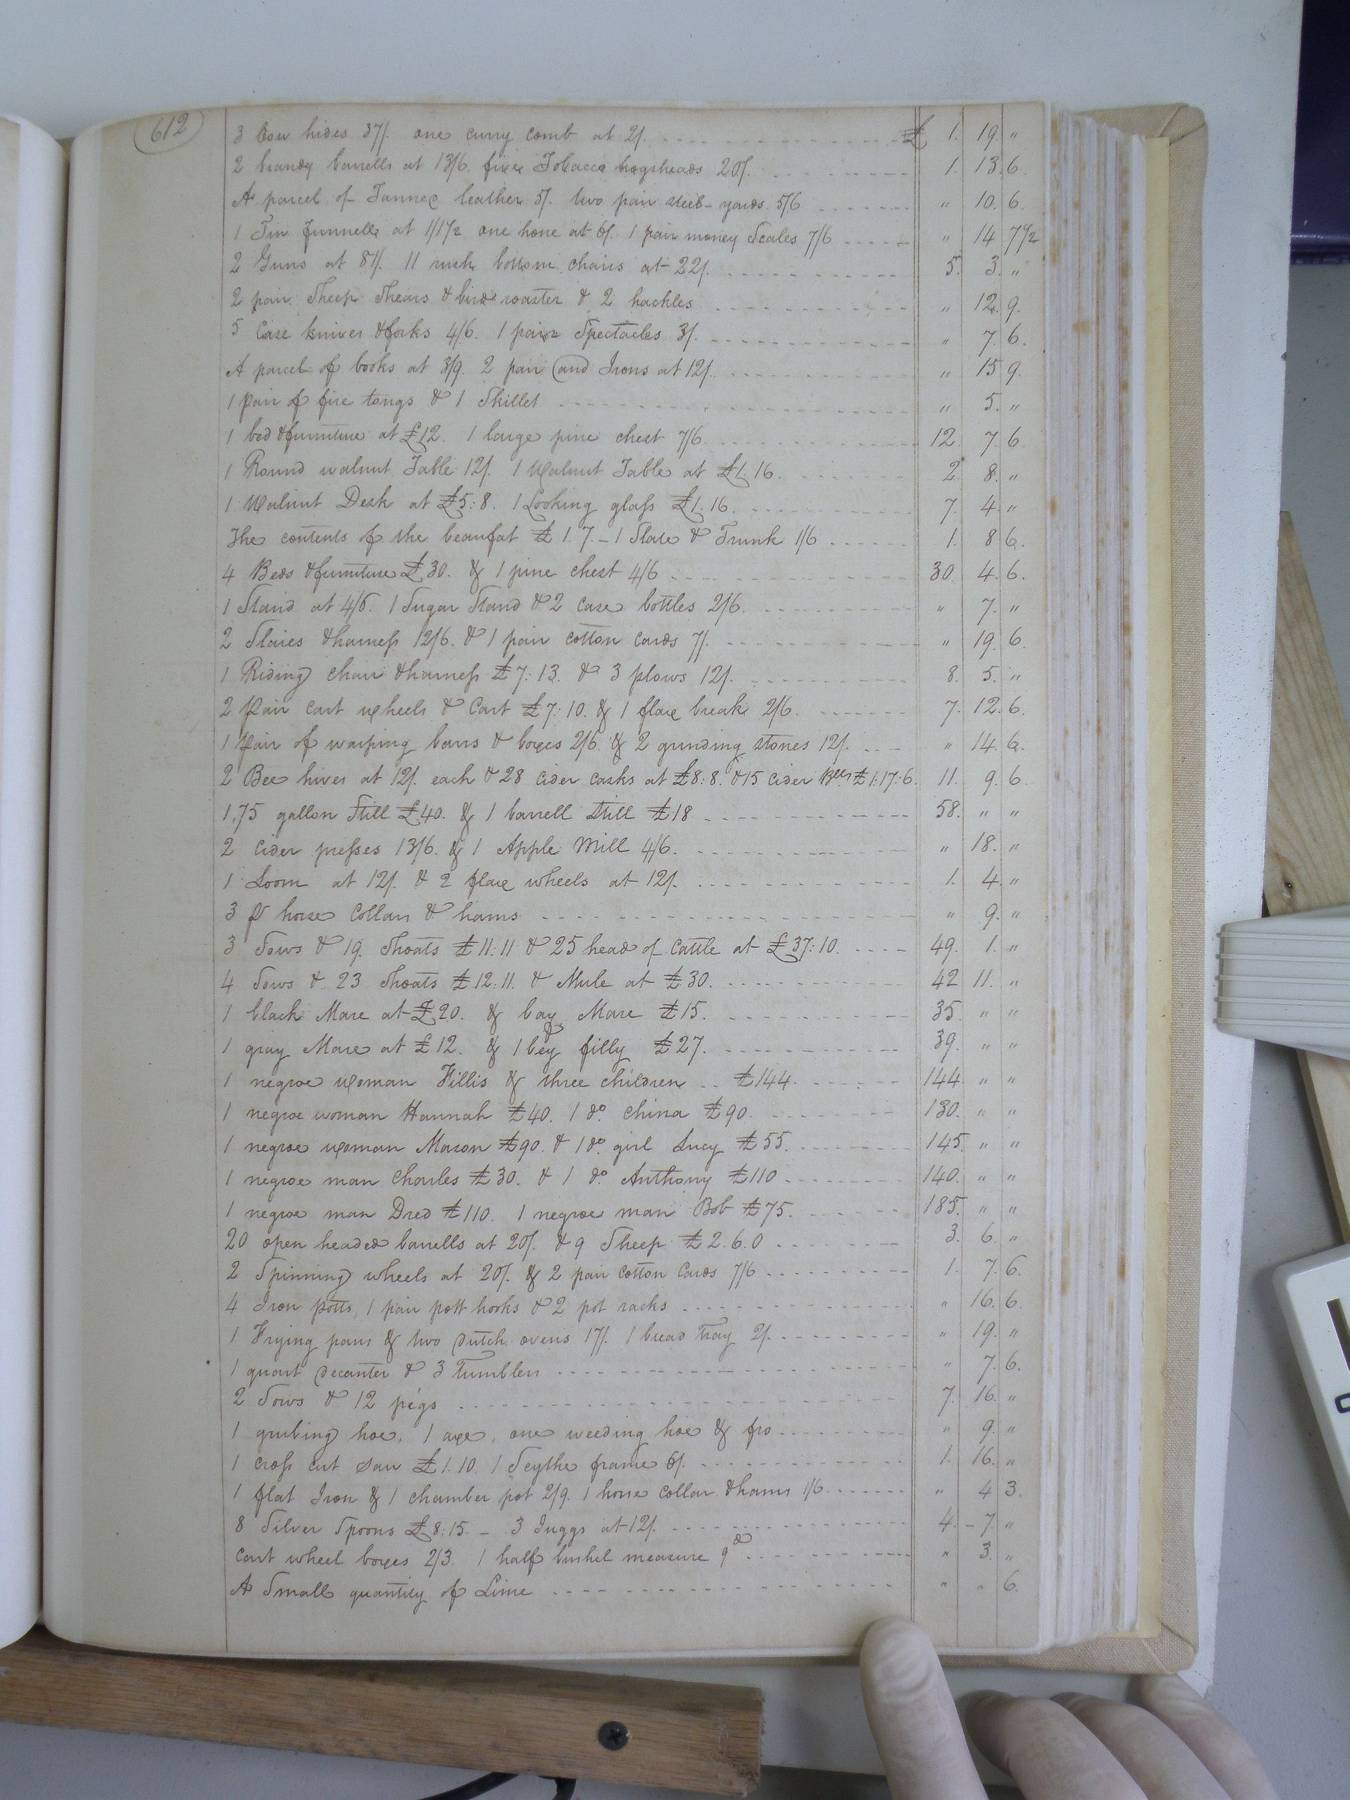 612
3 Cow hides 37/. one curry comb at 2/. £ 1. 19. "
2 brandy barrells at 13/6. five Tobacco hogsheads 20/. 1. 13. 6.
A parcel of Tanned leather 5/. two pair steel-yards 5/6 " 10. 6.
1 Tin funnells at 1/1½ one hone at 6/. 1 pair money Scales 7/6 " 14 7½
2 Guns at 81/. 11 rush bottom chairs at 22/. 5. 3. "
2 pair Sheep Shears & bird roaster & 2 hackles " 12. 9.
5 Case knives & forks 4/6. 1 pair Spectacles 3/. " 7. 6.
A parcel of books at 3/9. 2 pair and Irons at 12/. " 15 9.
1 pair of fire tongs & 1 Skillet " 5. "
1 bed & furniture at £12. 1 large pine chest 7/6 12. 7 6.
1 Round walnut Table 12/. 1 Walnut Table at £1.16. 2. 8. "
1 Walnut Desk at £5:8. 1 Looking glass £1.16. 7. 4. "
The contents of the beaufat £1.7. - 1 Slate & Trunk 1/6 1. 8 6.
4 Beds & furniture £30. & 1 pine chest 4/6 30. 4. 6.
1 Stand at 4/6. 1 Sugar Stand & 2 case bottles 2/6. " 7. "
2 Slaies & harness 12/6. & 1 pair cotton cards 7/. " 19. 6.
1 Riding chair & harness £7:13. & 3 plows 12/. 8. 5. "
2 Pair cart wheels & Cart £7:10. & 1 flax break 2/6. 7. 12. 6.
1 pair of warping barrs & boxes 2/6. & 2 grinding stones 12/. " 14. 6.
2 Bee hives at 12/. each & 28 cider casks at £8:8. & 15 cider £1:17:6. 11. 9. 6
1.75 gallon Still £40. & 1 barrell Still £18 58. " "
2 Cider presses 13/6. & 1 Apple Mill 4/6. " 18. "
1 Loom at 12/. & 2 flax wheels at 12/. 1. 4. "
3 pr horse Collars & hams " 9. "
3 Sows & 19. Shoats £11:11 & 25 head of Cattle at £37:10. 49. 1. "
4 Sows & 23 Shoats £12.11. & Mule at £30. 42 11. "
1 black Mare at £20. & bay Mare £15. 35. " "
1 gray Mare at £12. & 1 bay filly £27. 39. " "
1 negroe woman Fillis & three children £144. 144 " "
1 negroe woman Hannah £40. 1 do. China £90. 130. " "
1 negroe woman Mason £90. & 1 do. girl Lucy £55. 145. " "
1 negroe man Charles £30. & 1 do. Anthony £110 140. " "
1 negroe man Dred £110. 1 negroe man Bob £75. 185. " "
20 open headed barrells at 20/. & 9 Sheep £2.6.0 3. 6. "
2 Spinning wheels at 20/. & 2 pair cotton Cards 7/6 1. 7. 6.
4 Iron potts, 1 pair pott hooks & 2 pot racks " 16. 6.
1 Frying pan & two Dutch ovens 17/. 1 bread tray 2/. " 19. "
1 quart Decanter & 3 tumblers " 7. 6.
2 Sows & 12 pigs 7. 16. "
1 grubing hoe, 1 axe, one weeding hoe & fro " 9. "
1 cross cut saw £1.10. 1 Scythe frame 6/. 1. 16. "
1 flat Iron & 1 chamber pot 2/9. 1 horse collar & hams 1/6 " 4 3.
8 Silver Spoons £8:15. - 3 Juggs at 12/. 4. - 7 "
Cart wheel boxes 2/3. 1 half bushel measure 9d. " 3. "
A Small quantity of Lime " " 6.